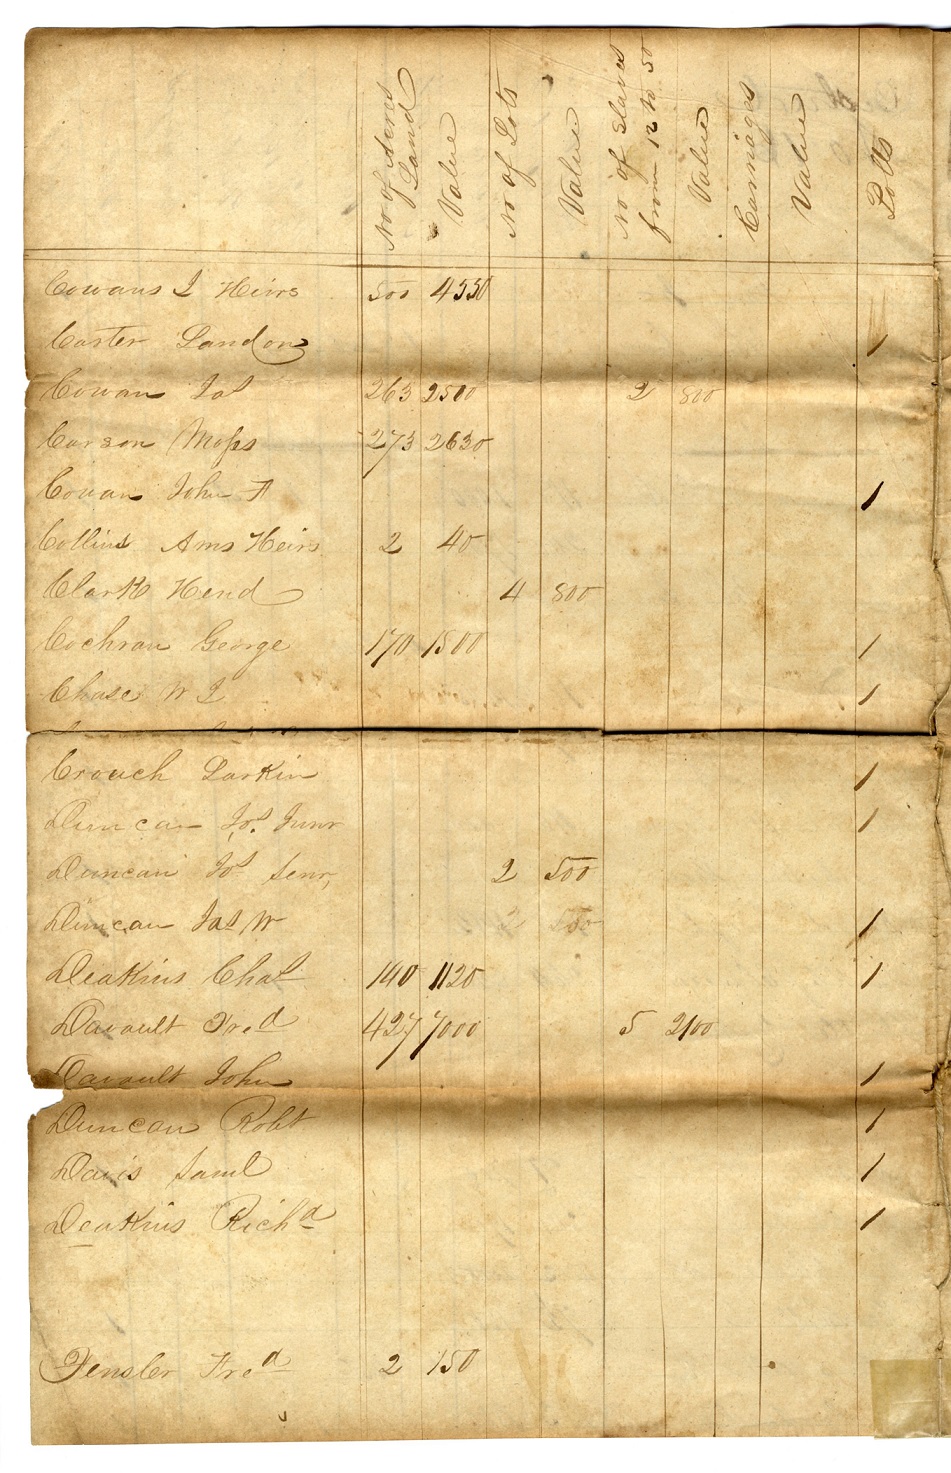 No of Acres Land Value No of Lots Value No of Slaves from 12 to 50 Value Carriages Value Polls
Cowans J Heirs 500 4550
Carter Landon 1
Cowan Jas 263 2500 2 800
Carson Moses 273 2630
Cowan John A 1
Collins Ams Heirs 2 40
Clark Hend 4 800
Cochran George 170 1500 1
Chase W J 1
Crouch Larkin 1
Duncan Jos. Junr 1
Duncan Jos Senr, 2 500
Duncan Jas W 2 500 1
Deakins Chas 140 1120 1
Davault Fred 427 7000 5 2100
Davault John 1
Duncan Robt 1
Davis Saml 1
Deakins Richd 1
Fensler Fred 2 150